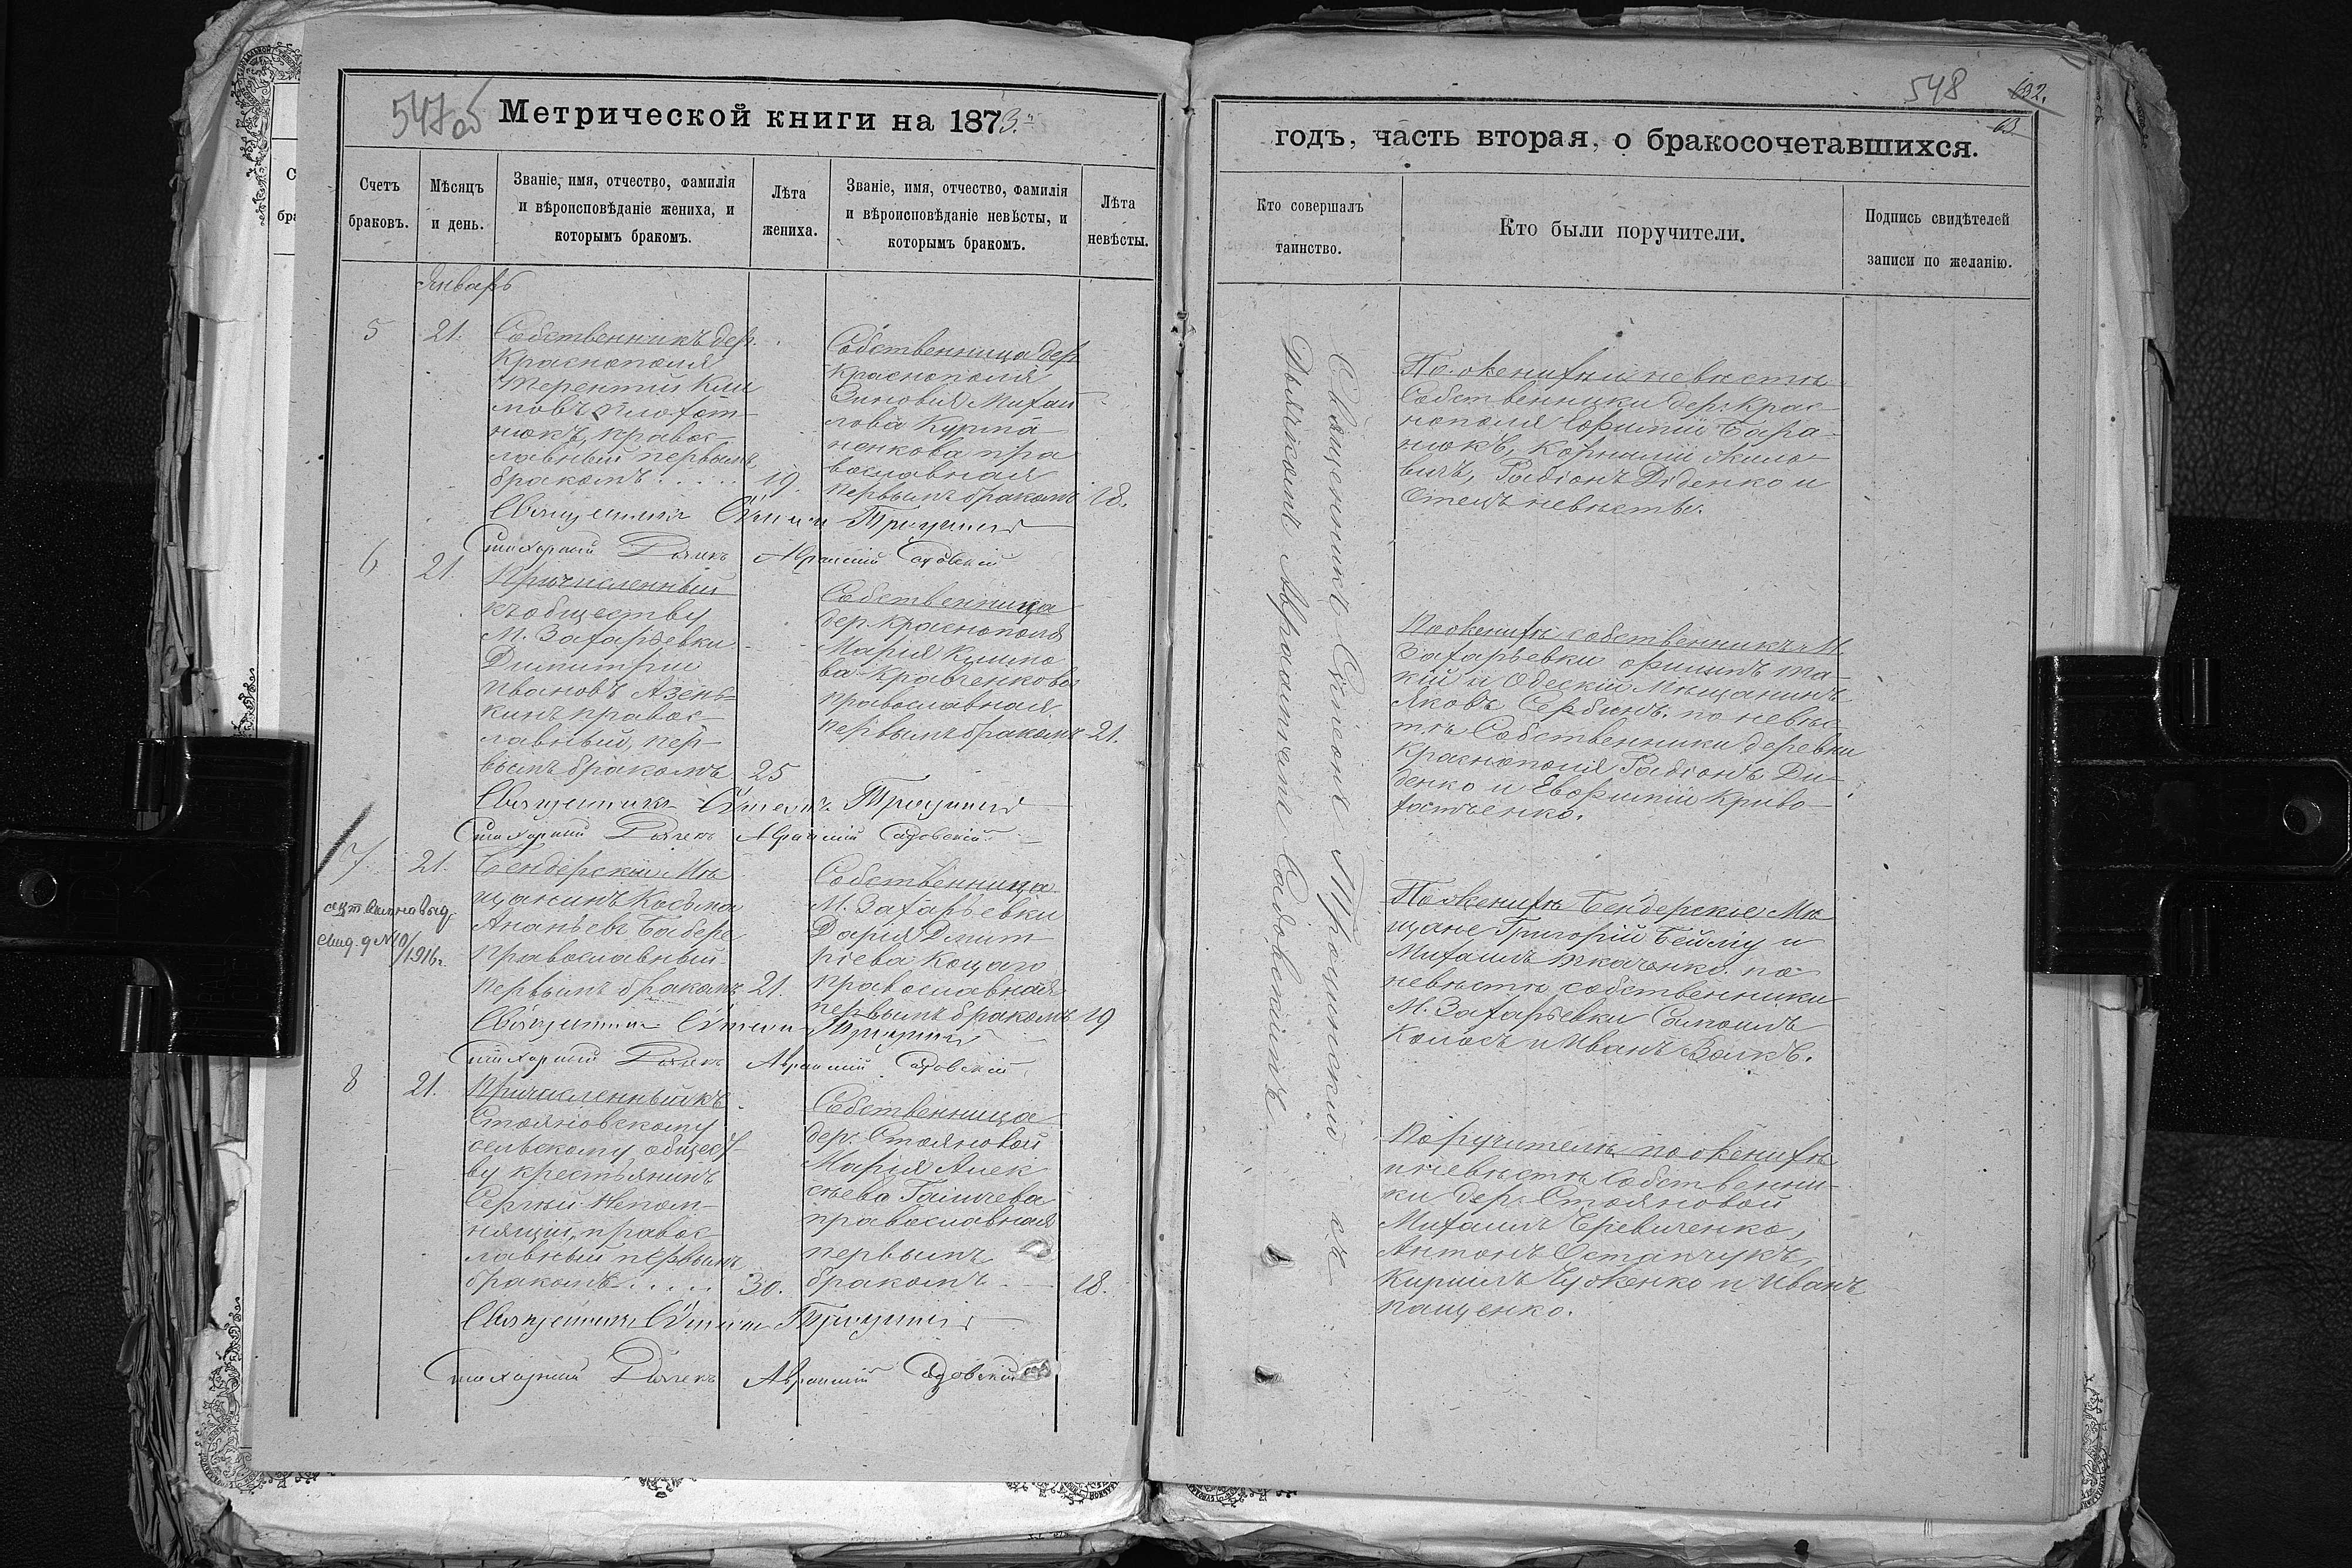 547об
Метрической книги на 1873.
Счетъ браковъ.
Мѣсяцъ и день.
Званіе, имя, отчество, фамилія и вѣроисповѣданіе жениха, и которымъ бракомъ.
Лѣта жениха.
Званіе, имя, отчество, фамилія и вѣроисповѣданіе невѣсты, и которымъ бракомъ.
Лѣта невѣсты.
Январь
5
21.
Собственникъ дер.
Краснополя
Терентий Кли
мовъ
нюкъ, правос-
лавный первымъ
бракомъ..... 19.
Собственница дер
Краснополя
Михай
лова Курта
ненкова пра
вославная
первымъ бракомъ 18.
Священникъ Сѵмеонъ
Стихарный Дьячекъ Авраамій Садовскій
6
21.
Причисленный
къ обществу
М. Захарьевки
Димитрий
Ивановъ Азень-
кинъ правос-
лавный, пер-
вымъ бракомъ 25
Собственница
дер. Краснополя
Мария
ва Кравченкова
православная
первымъ бракомъ 21.
Священникъ Сѵмеонъ
Стихарный Дьячекъ Авраамій Садовскій
7
21.
Бендерскій Мѣ
щанинъ Косьма
Ананьевъ Бабере
Православный
первымъ бракомъ 21.
Собственница
М. Захарьевки
Дарія Дмит
ріева Коцаго
православная
первымъ бракомъ 19
выд.
свид. № 10/1916 г.
Священникъ Сѵмеонъ
Стихарный Дьячекъ Авраамій Садовскій
8
21.
Причисленный къ
Стояновскому
сельскому общест
ву крестьянинъ
Сергий Непом-
нящий, правос
лавный первымъ
бракомъ..... 30.
Собственница
дер. Стояновой
Марія Алек
сѣева Галичева
православная
первымъ
бракомъ 18.
Священникъ Сѵмеонъ
Стихарный Дьячекъ Авраамій Садовскій
548
132.
63
годъ, часть вторая, о бракосочетавшихся.
Кто совершалъ таинство.
Кто были поручители.
Подпись свидѣтелей записи по желанію.
Священникъ Сѵмеонъ съ
Дьячкомъ Авраамиемъ Садовскимъ
По женихѣ и невѣстѣ
Собственники дер. Крас-
нополя Ефимій Бара-
нюкъ, Корнилій
Радіонъ Діденко и
Отецъ невѣсты.
По женихѣ собственникъ М.
Захарьевки
и Одескій Мѣщанинъ
Яковъ Сербинъ. по невѣс
тѣ Собственники деревни
Краснополя Радіонъ Ди-
денко и Евфимій Криво-
По женихѣ Бендерскіе Мѣ
щане Григорій Бейліу и
Михаилъ Ткаченко. по
невѣстѣ собственники
М. Захарьевки Самоилъ
Колосъ и Иванъ Волкъ.
Поручители по женихѣ
и невѣстѣ Собственни-
ки дер. Стояновой
Михаилъ Черевиченко,
Антонъ Остапчукъ,
Кирилъ и Иванъ
Пащенко.